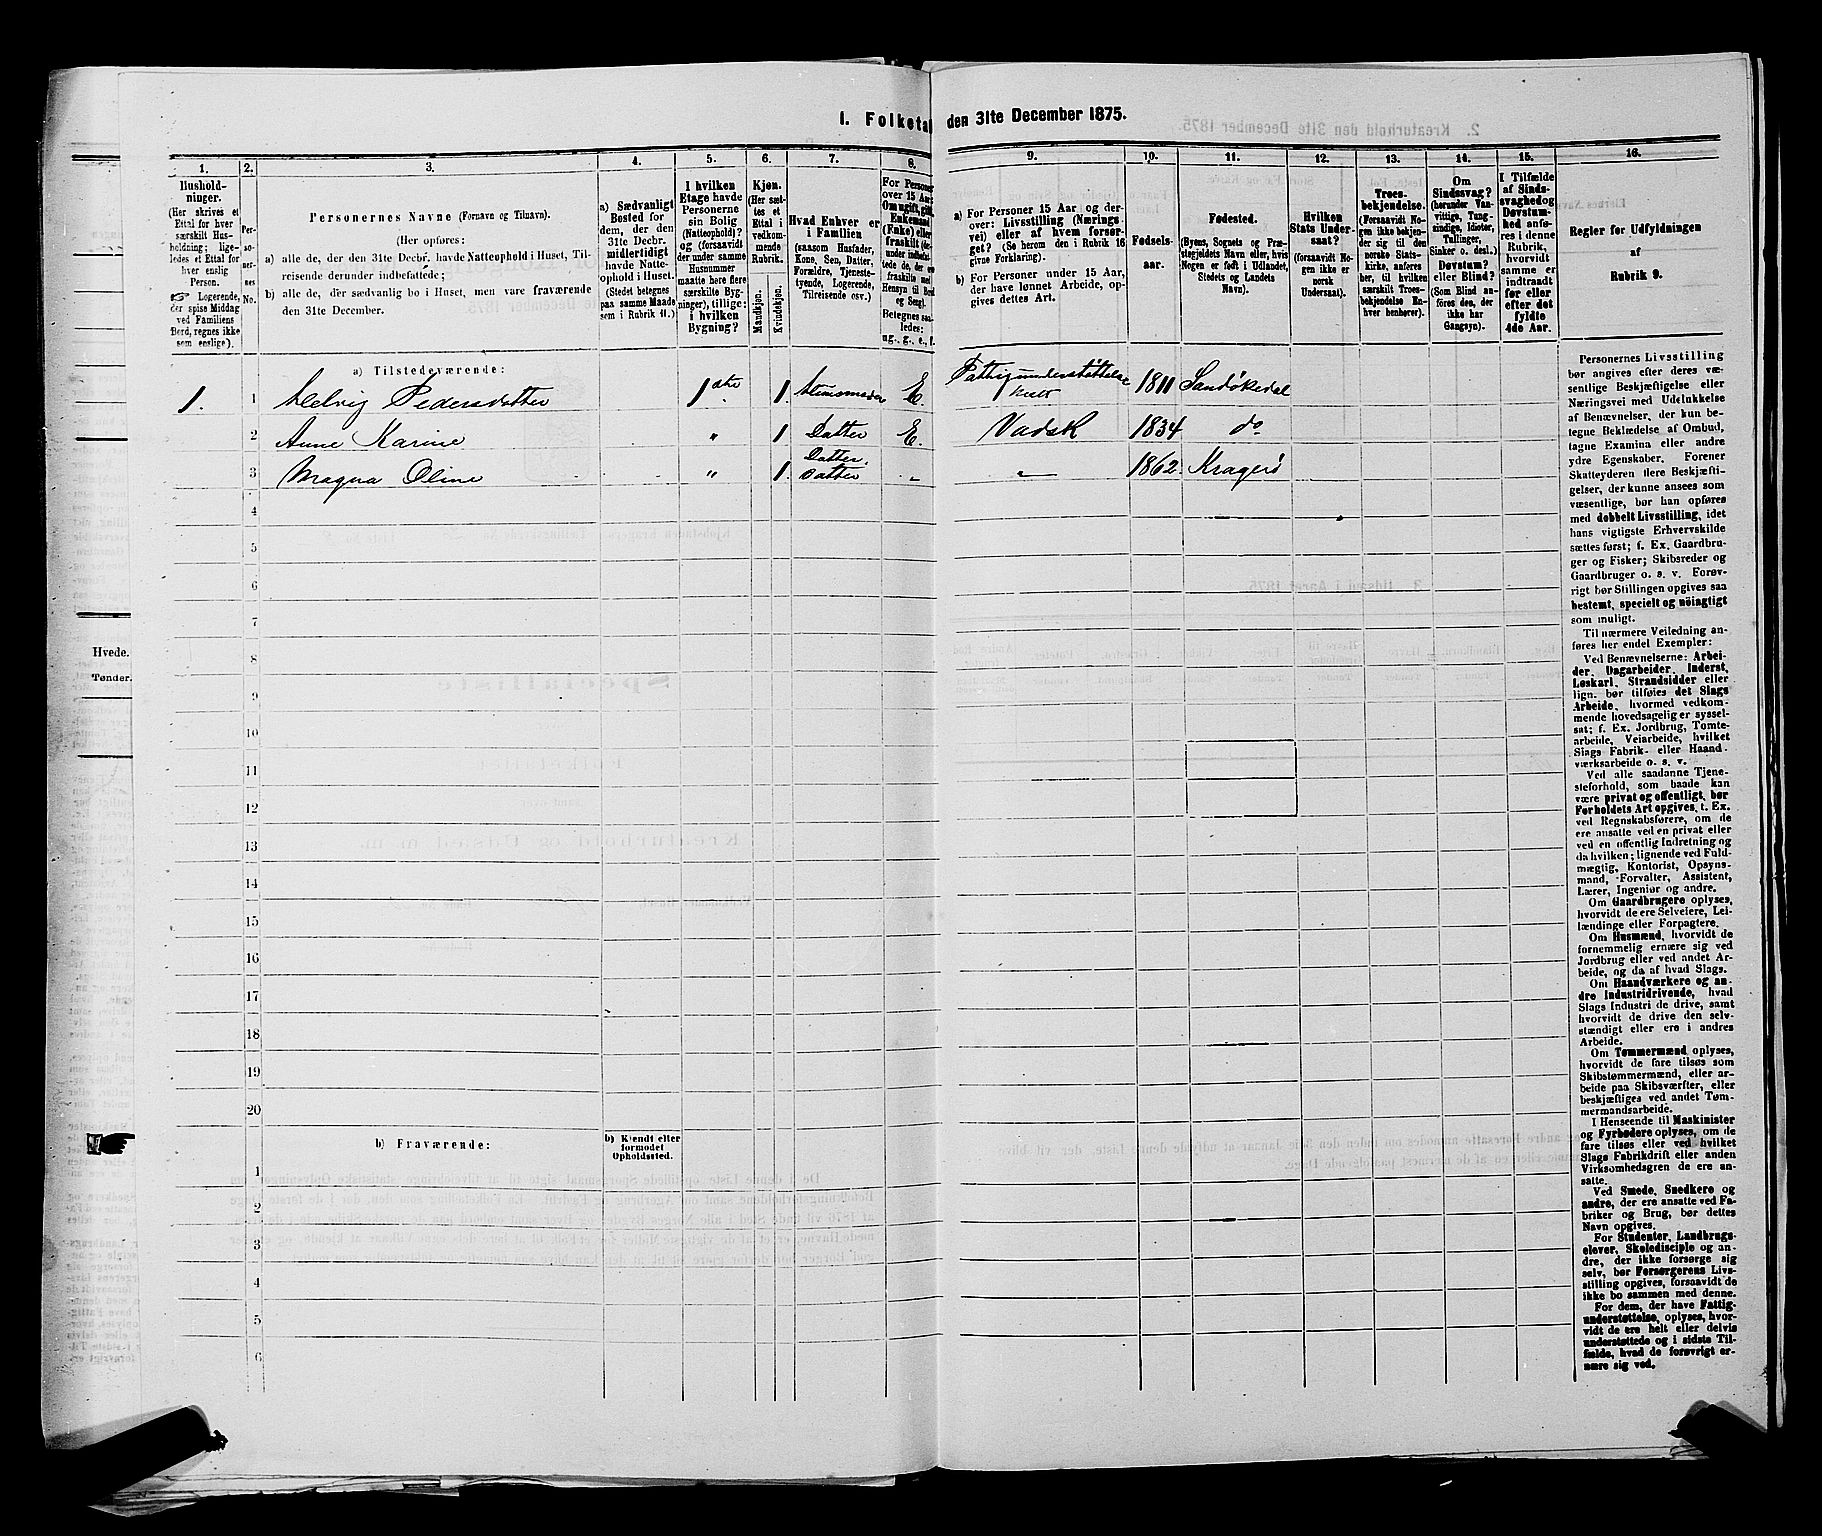 1. Folketal den 31te December 1875.
1. 2. 3. 4. 5. 6. 7. 8. 9. 10. 11. 12. 13. 14. 15. 16.
Hushold-
ninger.
(Her skrives et
Ettal for hver
særskilt Hus-
holdning; lige-
ledes et Ettal for
hver enslig
Person.
☞ Logerende,
der spise Middag
ved Familiens
Bord, regnes ikke
som enslige).
Per-
so-
ner-
nes
No.
Personernes Navne (Fornavn og Tilnavn).
(Her opføres:
a) alle de, der den 31te Decbr. havde Natteophold i Huset, Til-
reisende derunder indbefattede;
b) alle de, der sædvanlig bo i Huset, men vare fraværende
den 31te December.
a) Sædvanligt
Bosted for
dem, der den
31te Decbr.
midlertidigt
havde Natte-
ophold i Huset.
(Stedet betegnes
paa samme Maade
som i Rubrik 11.)
I hvilken
Etage havde
Personerne
sin Bolig
(Natteophold)?
og (forsaavidt
der under samme
Husnummer
maatte høre flere
særskilte Byg-
ninger), tillige:
i hvilken
Bygning?
Kjøn.
(Her sæt-
tes et
Ettal i
vedkom-
mende
Rubrik.
Mandkjøn.
Kvindekjøn.
Hvad Enhver er
i Familien
(saasom Husfader,
Kone, Søn, Datter,
Forældre, Tjeneste-
tyende, Logerende,
Tilreisende osv.)
a) For Personer 15 Aar og der-
over: Livsstilling (Nærings-
vei) eller af hvem forsør-
get? (Se herom den i Rubrik 16
givne Forklaring).
b) For Personer under 15 Aar,
der have lønnet Arbeide, op-
gives dettes Art.
Fødsels-
aar.
Fødested.
(Byens, Sognets og Præ-
stegjeldets Navn eller, hvis
Nogen er født i Udlandet,
Stedets og Landets
Navn).
Hvilken
Stats Under-
saat?
(forsaavidt No-
gen ikke er
norsk
Undersaat).
Troes-
bekjendelse.
(Forsaavidt No-
gen ikke bekjen-
der sig til den
norske Stats-
kirke, anføres
her, til hvilken
særskilt Troes-
bekjendelse En-
hver henhører).
Om
Sindssvag?
(herunder Van-
vittige, Tung-
sindige, Idioter,
Tullinger,
Sinker o. desl.)
Døvstum?
eller Blind?
(Som Blind an-
føres den, der
ikke har
Gangsyn).
I Tilfælde
af Sinds-
svaghed og
Døvstum-
hed anfø-
res i denne
Rubrik,
hvorvidt
samme er
indtraadt
før eller
efter det
fyldte
4de Aar.
Regler for Udfyldningen
af
Rubrik 9.
a) Tilstedeværende:
1. 1 Helvig Pedersdatter 1ste 1 E. Fattigunderstøttelse 1811 Sandøkedal
2 Anne Karine " 1 Datter E. Vadsk 1834 do
3 Magna Oline " 1 Datter Datter " " 1862 Kragerø
4
5
6
7
8
9
10
11
12
13
14
15
16
17
18
19
20
b) Fraværende:
b) Kjendt eller
formodet
Opholdssted.
1
2
3
4
5
6
Personernes Livsstilling
bør angives efter deres væ-
sentlige Beskjæftigelse eller
Næringsvei med Udelukkelse
af Benævnelser, der kun be-
tegne Beklædelse af Ombud,
tagne Examina eller andre
ydre Egenskaber. Forener
Skatteyderen flere Beskjæfti-
gelser, der kunne ansees som
væsentlige, bør han opføres
med dobbelt Livsstilling, idet
hans vigtigste Erhvervskilde
sættes først; f. Ex. Gaardbru-
ger og Fisker; Skibsreder og
Gaardbruger o. s. v. Forøv-
rigt bør Stillingen opgives saa
bestemt, specielt og nøiagtigt
som muligt.
Til nærmere Veiledning an-
føres her endel Exempler:
Ved Benævnelserne: Arbei-
der, Dagarbeider, Inderst,
Løskarl, Strandsidder eller
lign. bør tilføies det Slags
Arbeide, hvormed vedkom-
mende hovedsagelig er syssel-
sat; f. Ex. Jordbrug, Tomte-
arbeide, Veiarbeide, hvilket
Slags Fabrik- eller Haand-
værksarbeide o. s. v.
Ved alle saadanne Tjene-
steforhold, som baade kan
være privat og offentligt, bør
Forholdets Art opgives, t. Ex.
ved Regnskabsførere, om de
ere ansatte ved en privat eller
ved en offentlig Indretning og
da hvilken; lignende ved Fuld-
mægtig, Kontorist, Opsyns-
mand, Forvalter, Assistent,
Lærer, Ingeniør og andre.
Om Gaardbrugere oplyses,
hvorvidt de ere Selveiere, Lei-
lændinge eller Forpagtere.
Om Husmænd, hvorvidt de
fornemmelig ernære sig ved
Jordbrug eller ved andet Ar-
beide, og da af hvad Slags.
Om Haandværkere og an-
dre Industridrivende, hvad
Slags Industri de drive, samt
hvorvidt de drive den selv-
stændigt eller ere i andres
Arbeide.
Om Tømmermænd oplyses,
hvorvidt de fare tilsøs som
Skibstømmermænd, eller ar-
beide paa Skibsværfter, eller
beskjæftiges ved andet Tøm-
mermandsarbeide.
I Henseende til Maskinister
og Fyrbødere oplyses, om de
fare tilsøs eller ved hvilket
Slags Fabrikdrift eller anden
Virksomhedsgren de ere an-
satte.
Ved Smede, Snedkere og
andre, der ere ansatte ved Fa-
briker og Brug, bør dettes
Navn opgives.
For Studenter, Landbrugs-
elever, Skoledisciple og an-
dre, der ikke forsørge sig
selv, bør Forsørgerens Livs-
stilling opgives, forsaavidt de
ikke bo sammen med denne.
For dem, der have Fattig-
understøttelse, oplyses, hvor-
vidt de ere helt eller delvis
understøttede og i sidste Til-
fælde, hvad de forøvrigt er-
nære sig ved.
Hvede.
Tønder.